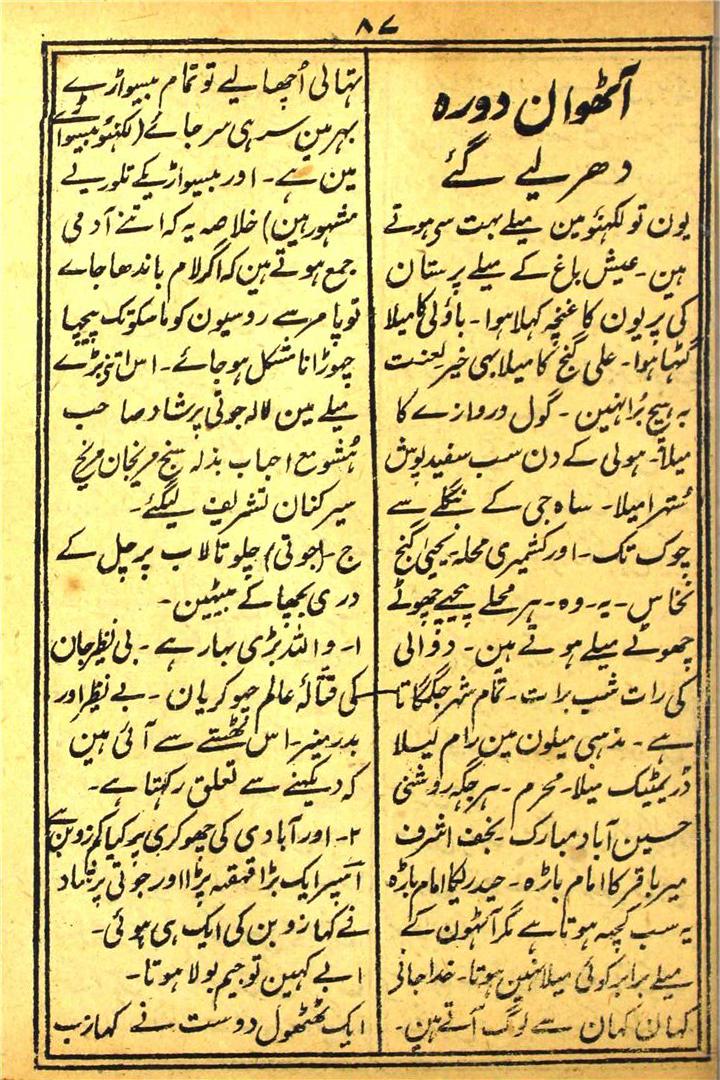 ۸۷
آٹھوان دورہ
دھر لیے گئے
یون تو لکھنؤ مین میلے بہت سی ہوتے
ہین۔ عیش باغ کے میلے پرستان
کی پریون کا غنچہ کہلا ہوا۔ باؤلی کا میلا
گٹھا ہوا۔ علی گنج کا میلا بہی خیر لعنت
بہ ہیچ بُرا نہین۔ گول دروازے کا
میلا۔ ہولی کے دن سب سفید پوش
ستھرا میلا۔ ساہ جی کے بنگلے سے
چوک تک۔ اور کشمیری محلہ۔ یحییٰ گنج
نخاس۔ یہ۔ وہ۔ ہر محلے پیچھے چھوٹے
چھوٹے میلے ہوتے ہین۔ دوالی
کی رات شب برات۔ تمام شہر جگمگاتا
ہے۔ مذہبی میلون مین رام لیلا
ڈریمٹیک میلا۔ محرم۔ ہر جگہ روشنی
حسین آباد مبارک۔ نجف اشرف
میر باقر کا امام باڑہ۔ حیدر لیکا امام باڑہ
یہ سب کچہہ ہوتا ہے مگر آٹھون کے
میلے برابر کوئی میلا نہین ہوتا۔ خدا جانی
کہان کہان سے لوگ آتے ہین۔
تہالی اُچھالیے تو تمام بیسواڑے
بہر مین سر ہی سر جائے (لکھنؤ بیسواڑے
مین ہے۔ اور بیسواڑیکے تلوریے
مشہور ہین) خلاصہ یہ کہ اتنے آدمی
جمع ہوتے ہین کہ اگر لام باندھا جاے
تو پامر سے روسیون کو ماسکو تک پیچہا
چھوڑانا مشکل ہو جائے۔ اس اتنے بڑے
میلے مین لالہ جوتی پرشاد صاحب
مع احباب بذلہ سنج مرنجان مرنج
سیر کنان تشریف لیگئے۔
ج۔ (جوتی) چلو تالاب پر چل کے
دری بچھا کے بیٹہین۔
۱۔ واللہ بڑی بہار ہے۔ بی نظیر جان
کی قتالۂ عالم چھوکریان۔ بے نظیر اور
بدر منیر۔ اس ٹھسے سے آئی ہین
کہ دیکہنے سے تعلق رکہتا ہے۔
۲۔ اور آبادی کی چھوکری پر کیا زوبن ہے
اسپر ایک بڑا قہقہہ پڑا اور جوتی پرشاد
نے کہا زوبن کی ایک ہی ہوئی۔
ابے کہین تو جیم بولا ہوتا۔
ایک ٹھٹھول دوست نے کہا زب